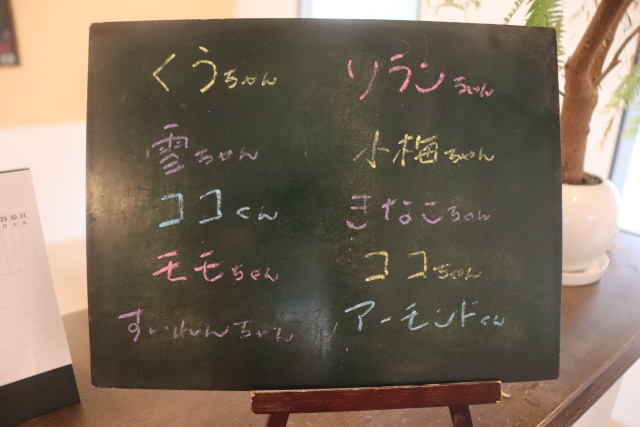 くうちゃん
ソランちゃん
雪ちゃん
小梅ちゃん
ココくん
きなこちゃん
モモちゃん
ココちゃん
すいれんちゃん
アーモンドくん
29 30 31
月 火 水